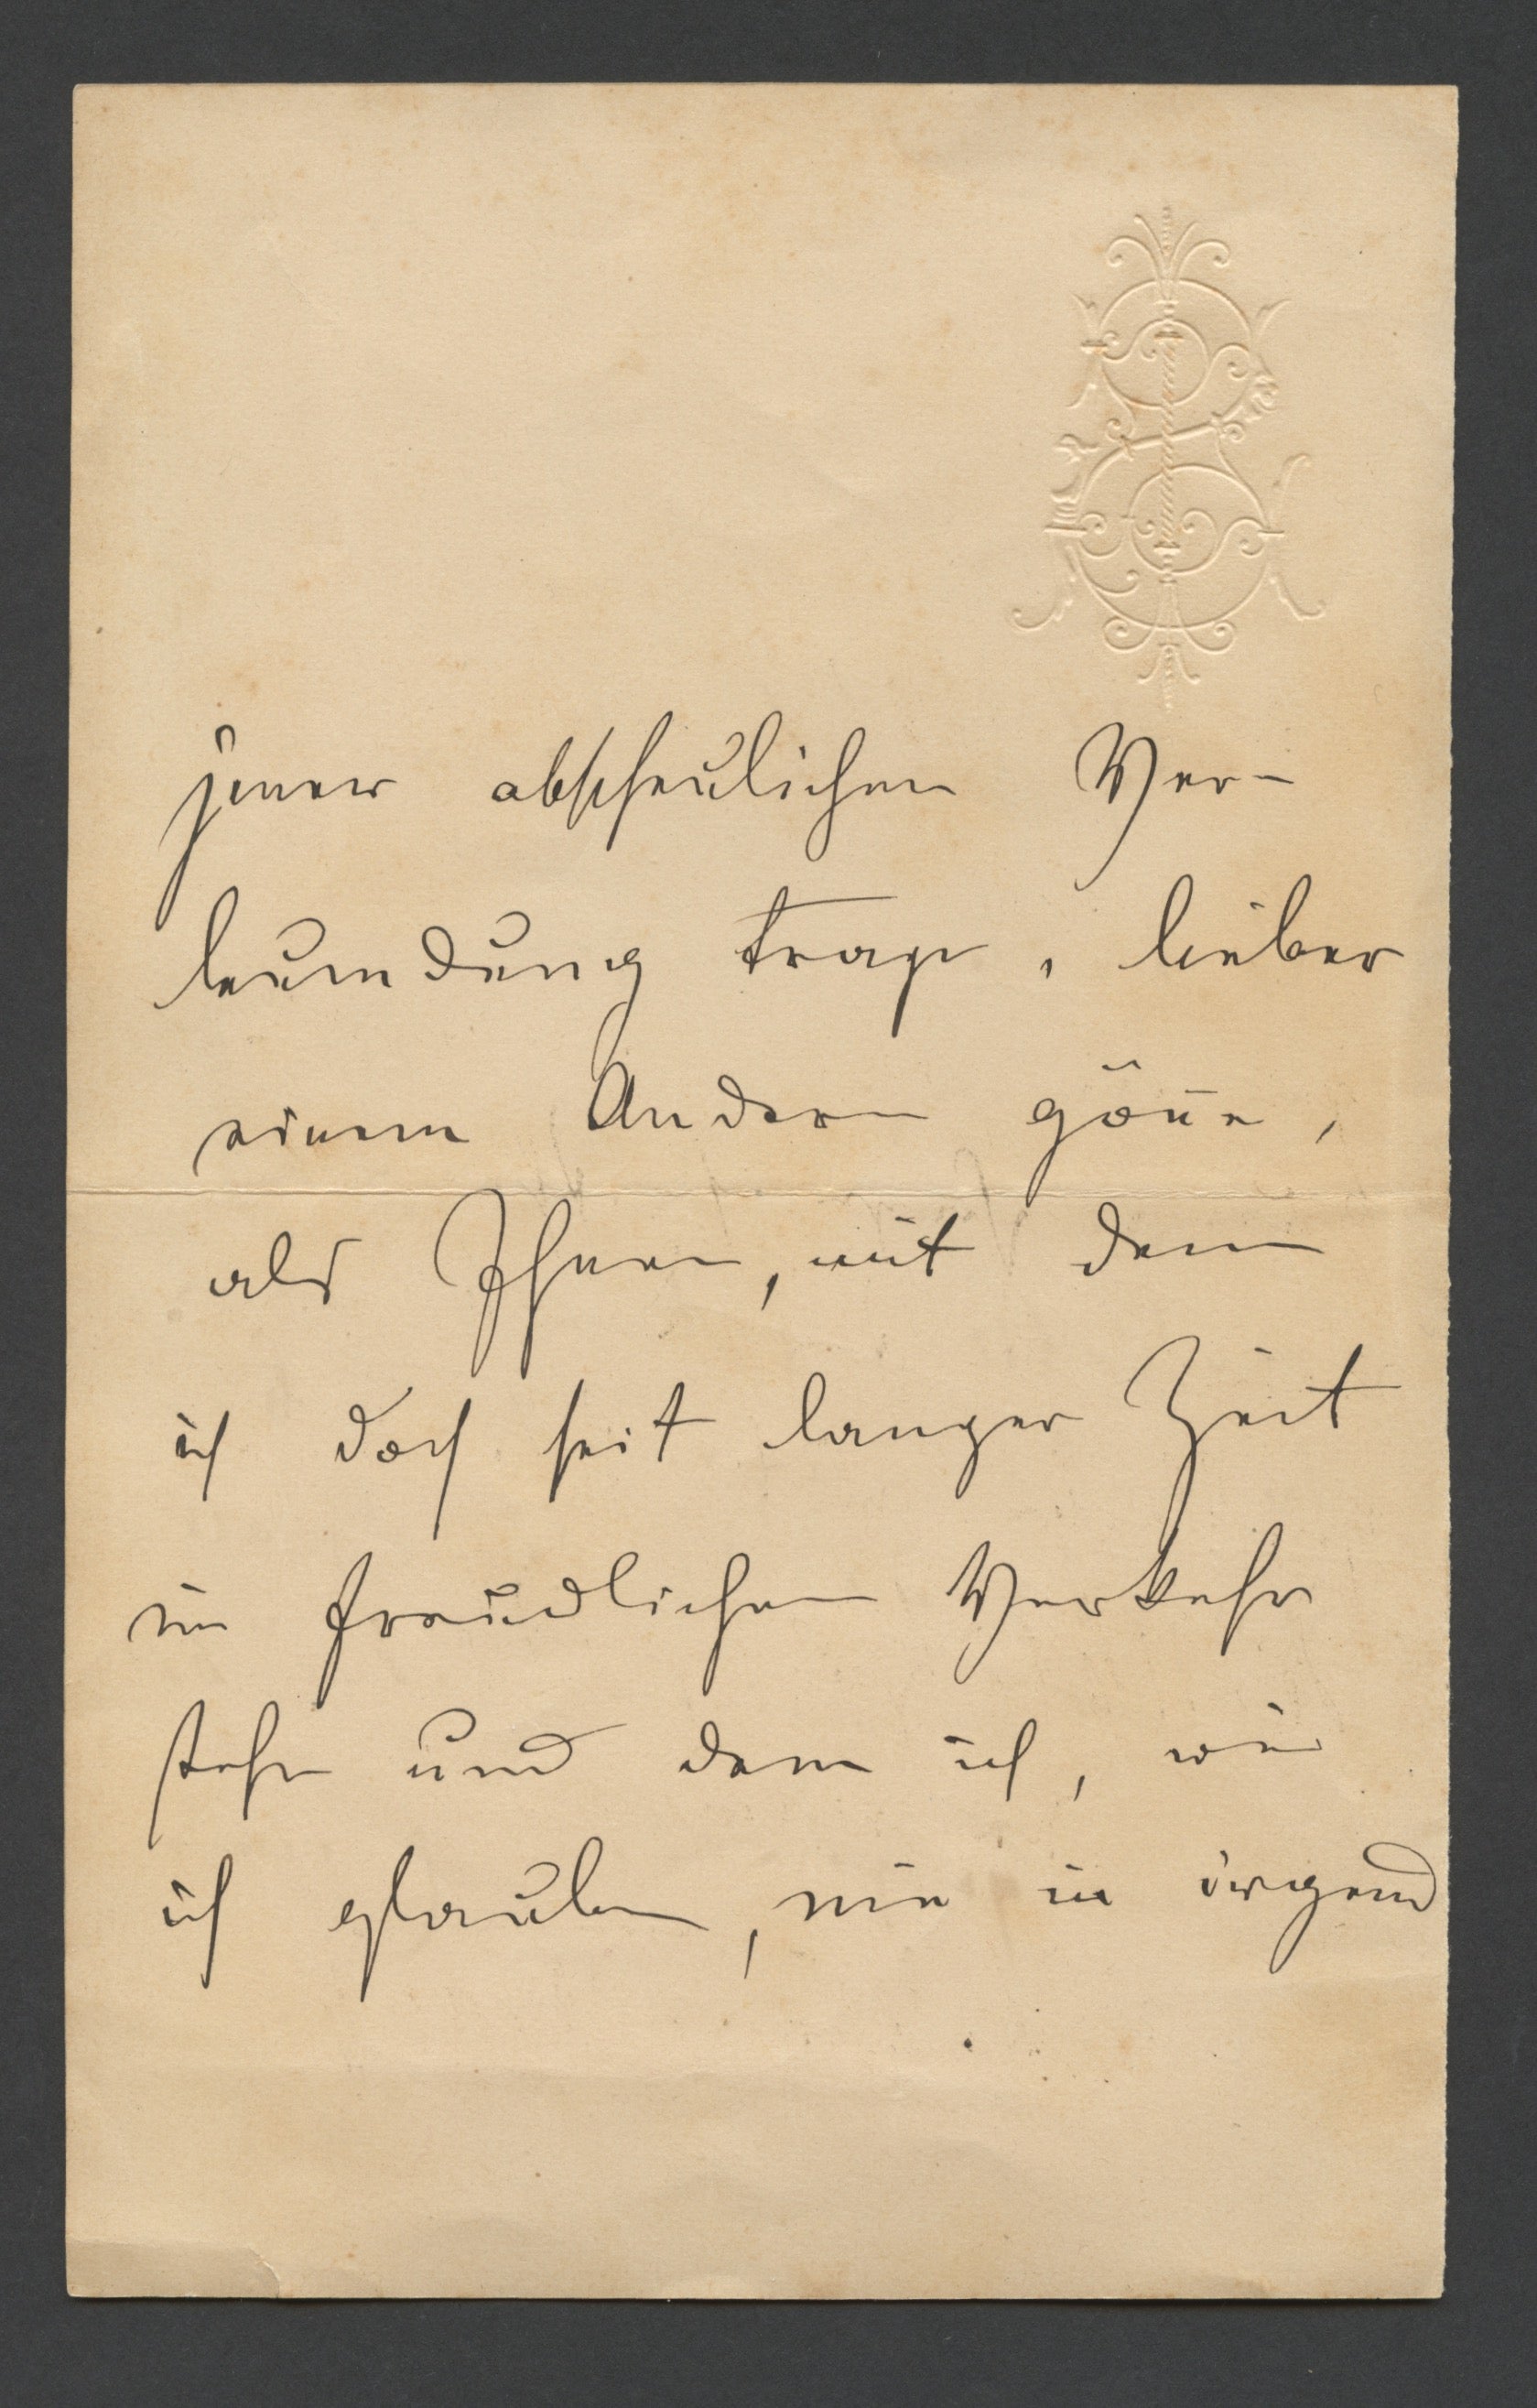 jener abscheulichen Ver-
leumdung trage, lieber
einem Andern gön̄e,
als Ihnen, mit dem
ich doch seit langer Zeit
im freundlichen Verkehr
stehe und dem ich, wie
ich glaube, nie in irgend